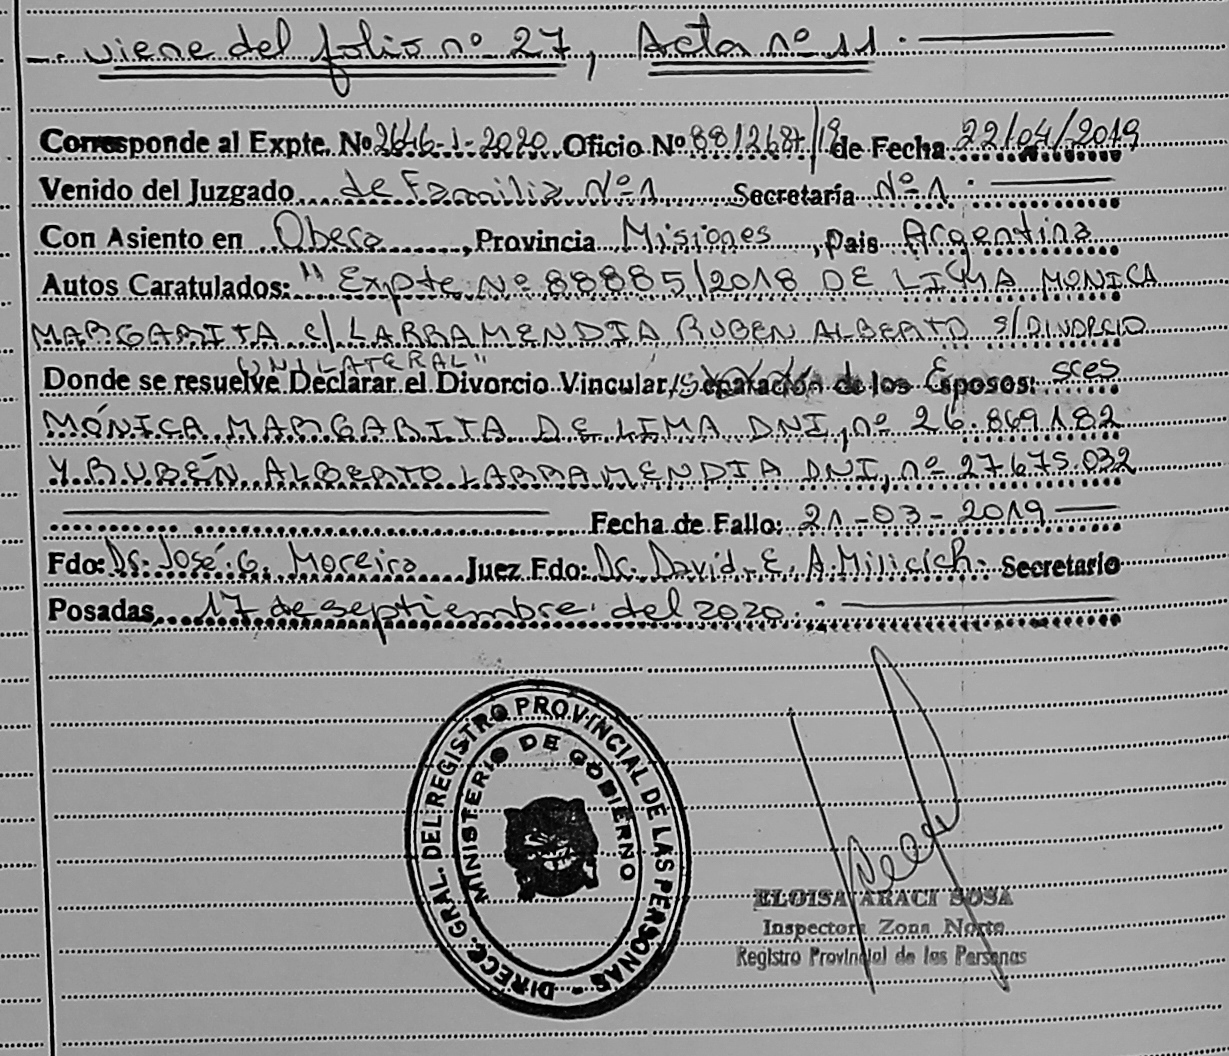 viene del folio nº 27, Acta nº 11.
Corresponde al Expte. Nº 2646-1-2020 Oficio Nº 88/268+/19 de Fecha 22/04/2019
Venido del Juzgado de Familia Nº 1 Secretaría Nº 1.
Con Asiento en Obera, Provincia Misiones, Pais Argentina
Autos Caratulados: "Expte Nº 88885/2018 DE LIMA MONICA
MARGARITA C/ LARRAMENDIA RUBEN ALBERTO S/DIVORCIO
UNILATERAL"
Donde se resuelve Declarar el Divorcio Vincular/Separación de los Esposos: sres
MÓNICA MARGARITA DE LIMA DNI, nº 26.869.182
Y RUBÉN ALBERTO LARRAMENDIA DNI, nº 27.675.032
Fecha de Fallo: 21-03-2019
Fdo: Dr. José G. Moreiro Juez Fdo: Dr. David E. A. Milicich. Secretario
Posadas, 17 de septiembre del 2020.
DIRECC. GRAL. DEL REGISTRO PROVINCIAL DE LAS PERSONAS
MINISTERIO DE GOBIERNO
ELOISA ARACI SOSA
Inspectora Zona Norte
Registro Provincial de las Personas